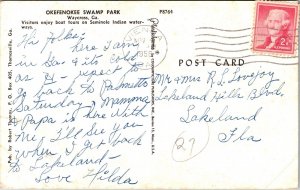 OKEFENOKEE SWAMP PARK
Waycross, Ga.
Visitors enjoy boat tours on Seminole Indian water-
ways.
P8764
Hi Folks;
here I am
in Ga & its cold
as H— expect to
go back to Palmetto
Saturday. Mamma
& Papa is here with
my I'll See you
when I get back
to Lakeland—
Love Hilda
POST CARD
Mr & Mrs R L Lovejoy
Lakeland Hills Blvd
Lakeland
Fla
27
2¢
Pub. by Robert Thomas, P. O. Box 405, Thomasville, Ga.